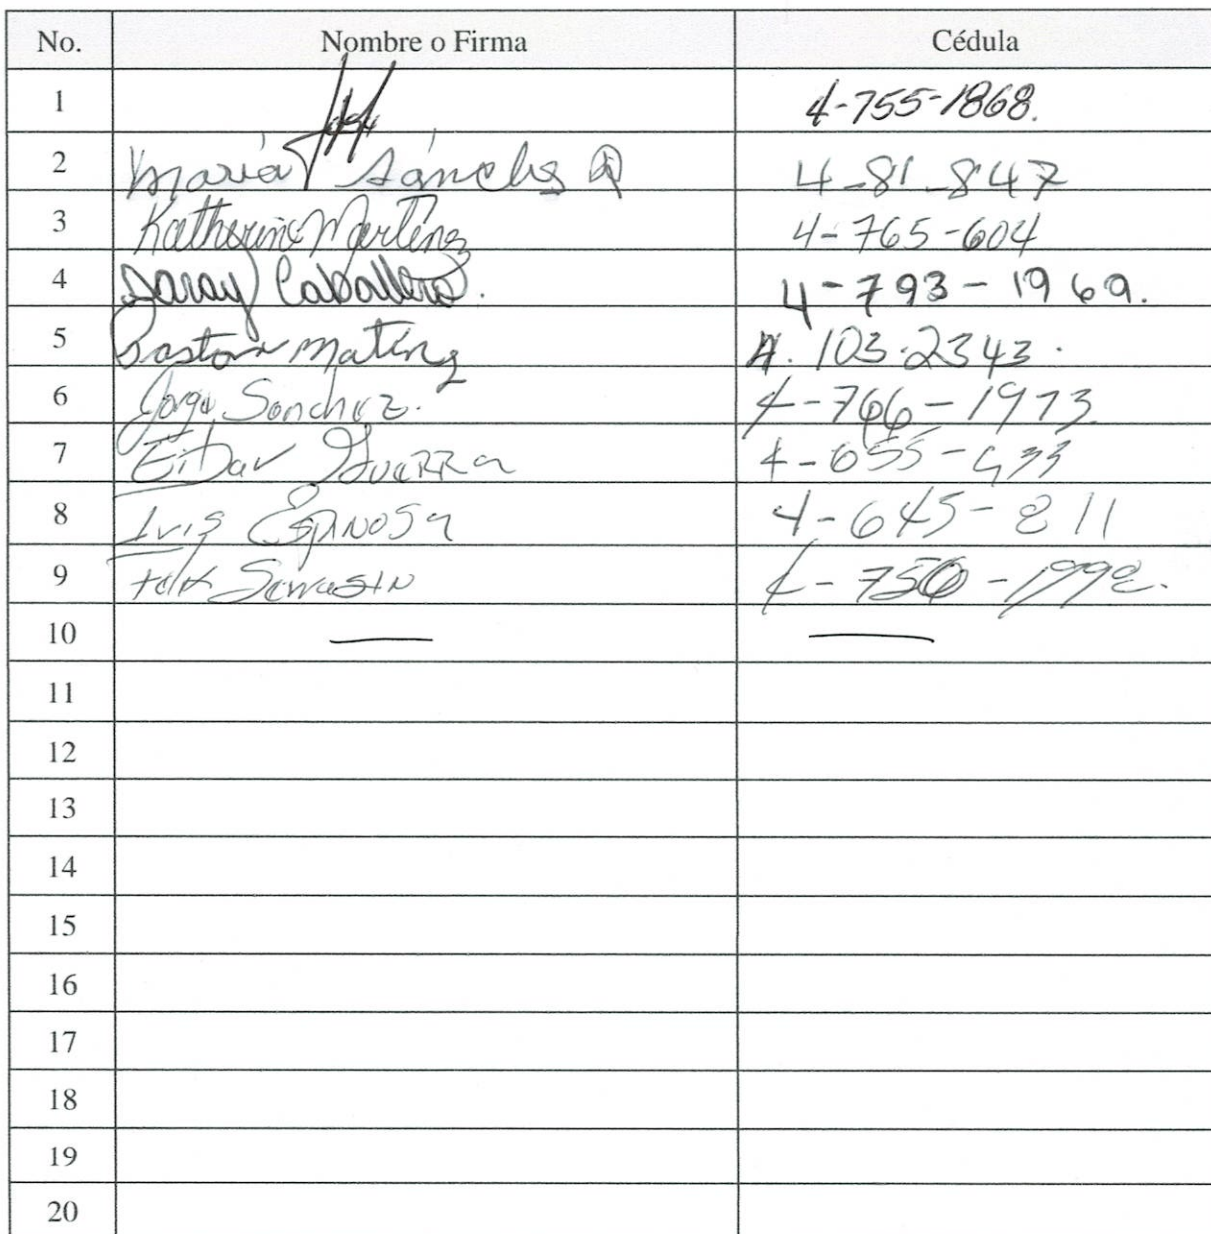 No. Nombre o Firma Cédula
1 4-755-1868.
2 María Sánchez R 4-81-847
3 Katherine Martínez 4-765-604
4 Saray Caballero. 4-793-1969.
5 Pastora Matínz 4.103.2343.
6 Jorge Sanchez. 4-766-1973
7 Eibar Guerra 4-655-433
8 Ivis Espinosa 4-645-811
9 4-750-1992.
10 — —
11
12
13
14
15
16
17
18
19
20